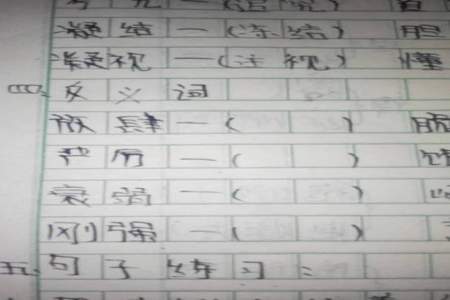 凝结—(冻结) 胆
凝视—(注视) 懂
四、反义词
放肆—( )
严厉—( )
衰弱—( )
刚强—( )
五、句子练习: